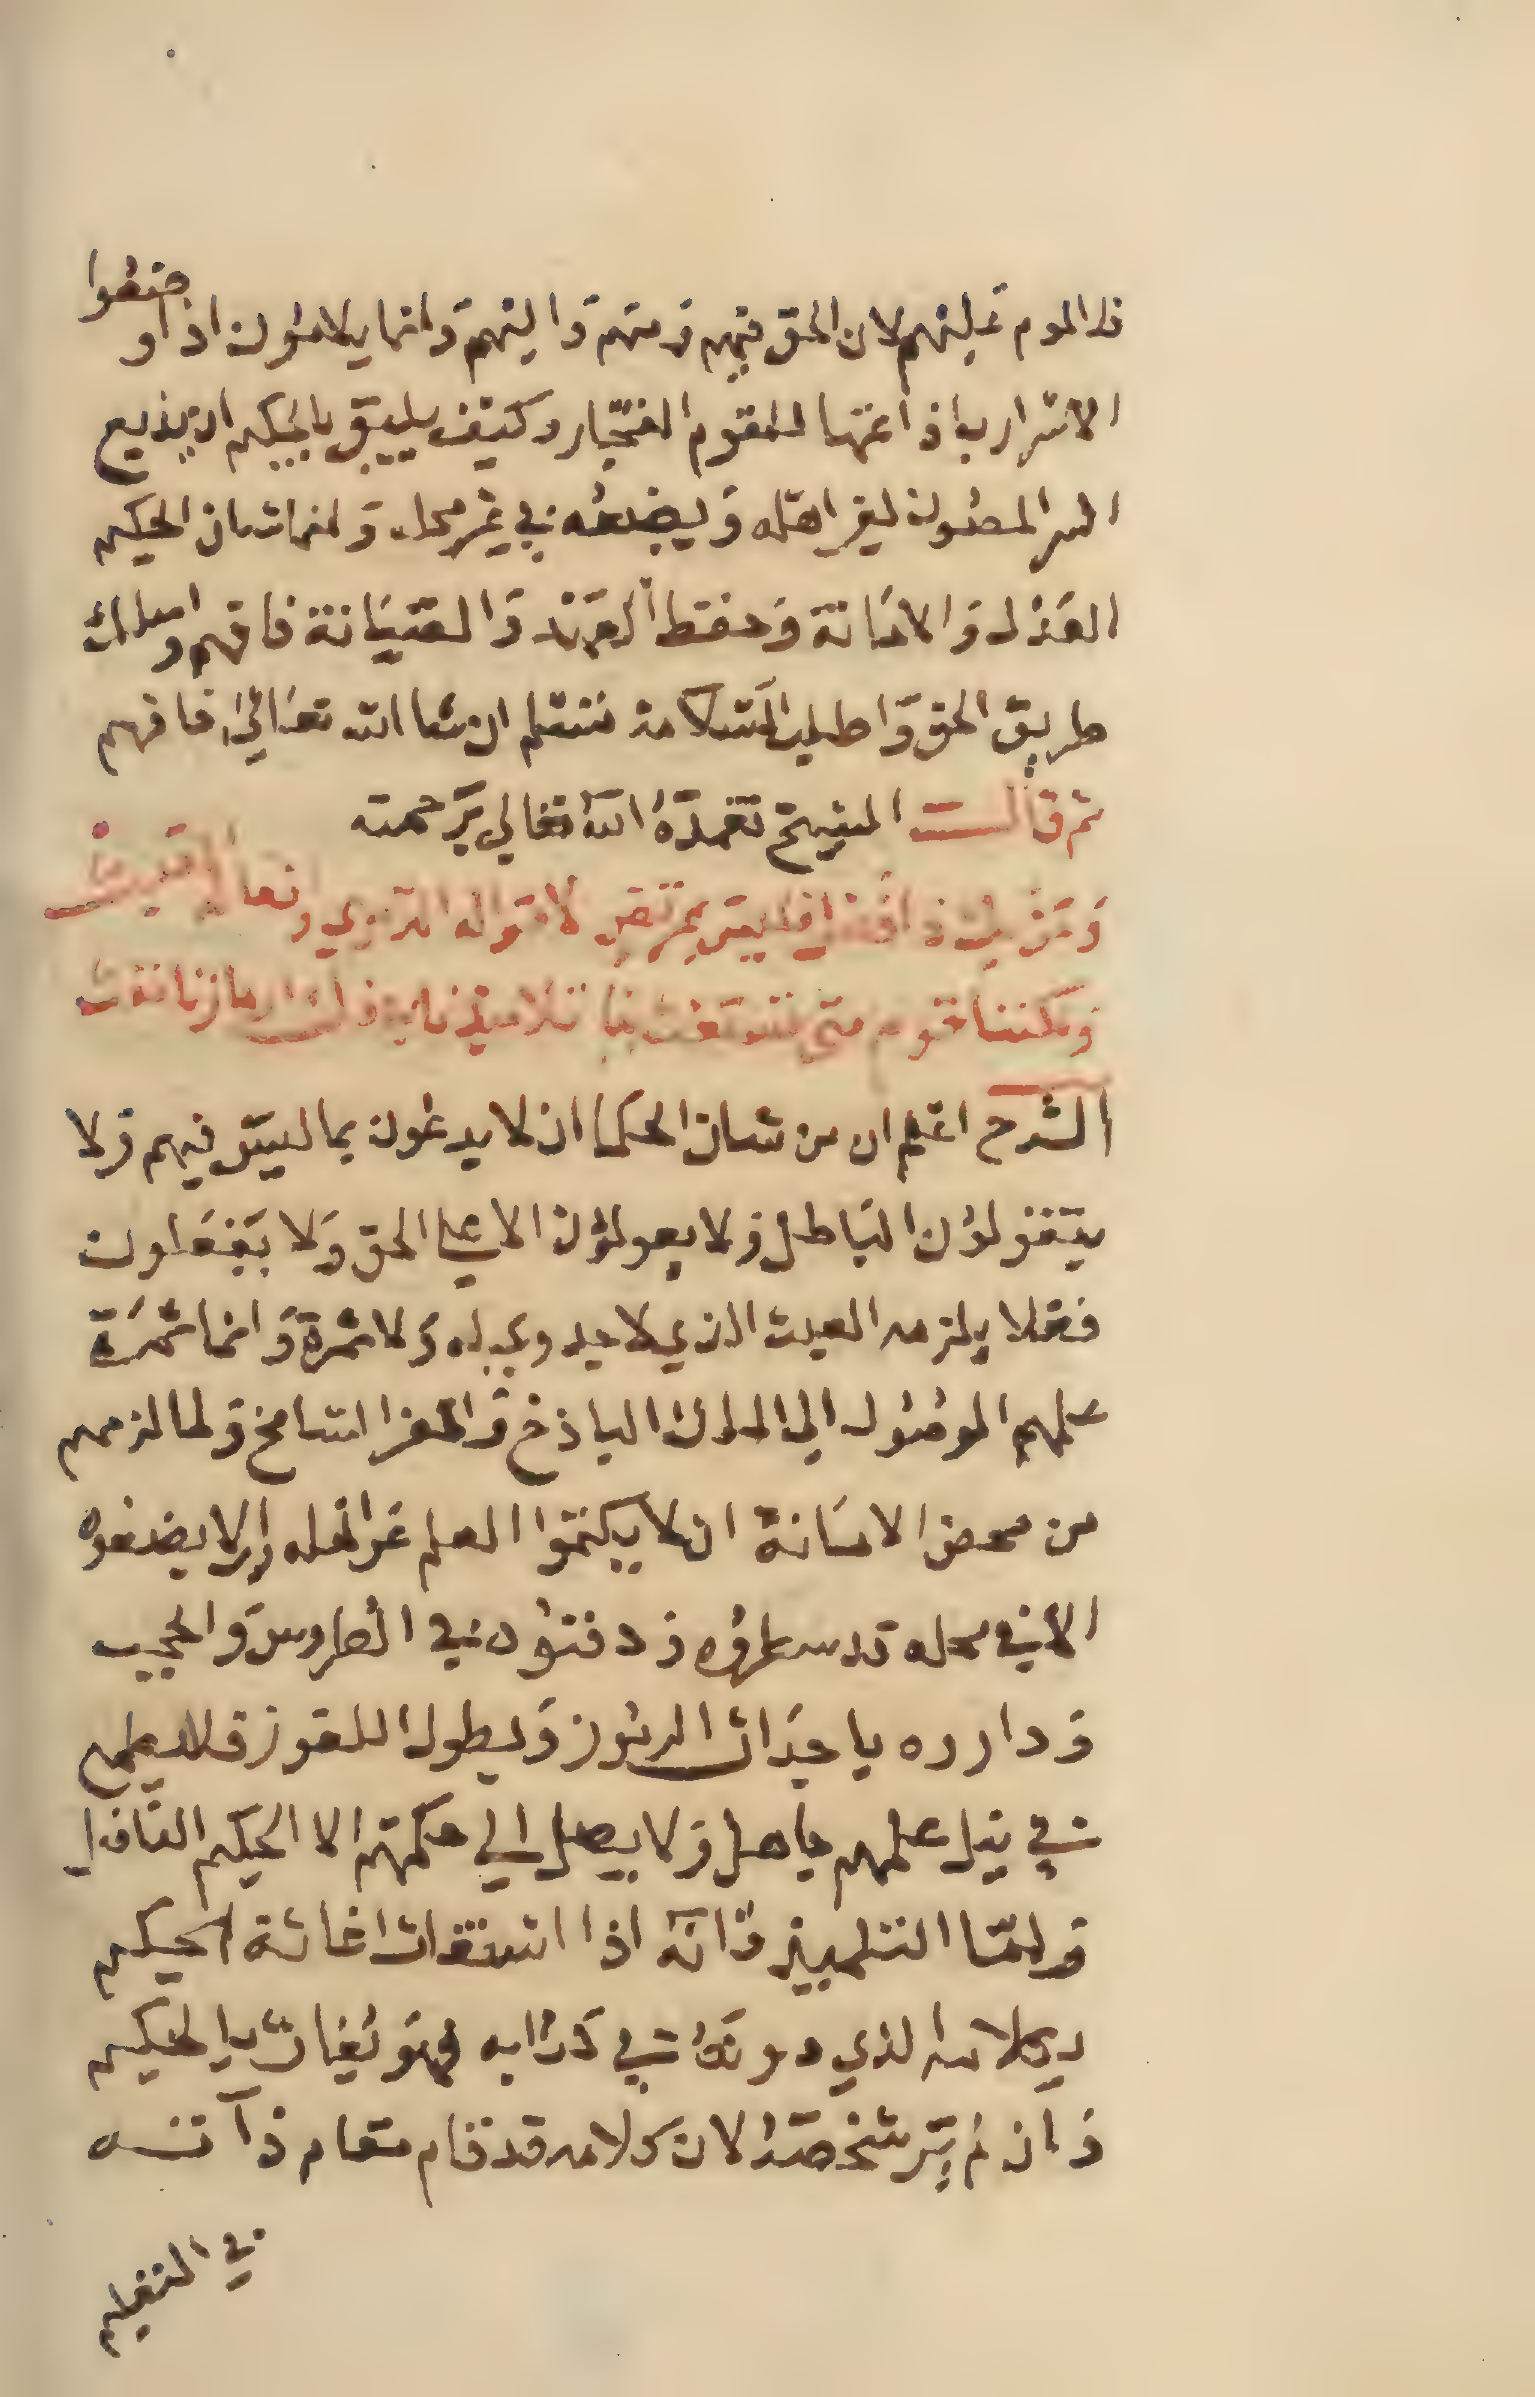 فلا لوم عليهم لان الحق فيهم ومنهم واليهم وانما يلامون اذا وضعوا
الاسرار باذاعتها للقوم الفجار وكيف يليق بالحكيم ان يذيع
السر المصون لغير اهله ويضعه في غير محله وانما شان الحكيم
العدل والامانة وحفظ العهد والصيانة فافهم واسلك
طريق الحق واطلب السلامة تسلم ان شا الله تعالى فافهم
ثم قال الشيخ تغمده الله تعالى برحمته
الشرح اعلم ان من شان الحكما ان لا يدعون بما ليس فيهم ولا
يتقولون الباطل ولا يعولون الا على الحق ولا يفعلون
فعلا يلزمه العبث الذي لا جدوى له ولا ثمرة وانما ثمرة
علمهم الوصول الى الملك الباذخ والعز الشامخ ولما لزمهم
من محض الامانة ان لا يكتموا العلم عن اهله ولا يضعوه
الا في محله قد سطروه ودفنوه في الطروس والحجب
وداروه باجداث الرموز وبطول اللغوز فلا يطمع
في نيل علمهم جاهل ولا يصل الى حكمتهم الا الحكيم الفاضل
واما التلميذ فانه اذا استغاث اغاثه الحكيم
بكلامه الذي دونه في كتابه فهو يغاث بالحكيم
وان لم ير شخصه لان كلامه قد قام مقام ذاته
في التعليم